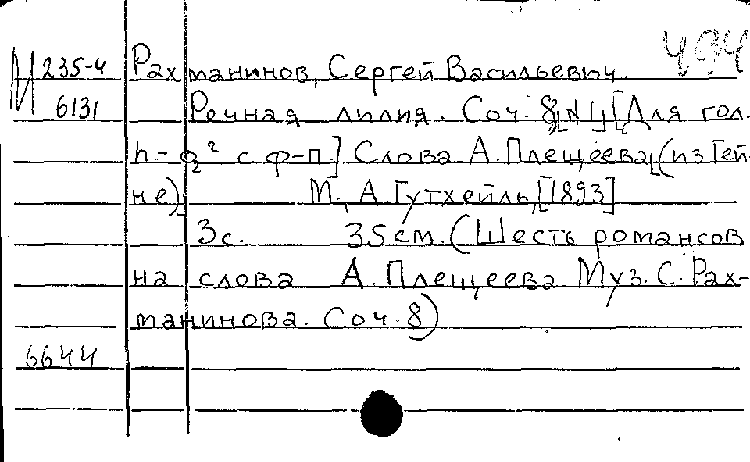 494
М 235-4 Рахманинов, Сергей Васильевич.
6131 Речная лилия. Соч. 8, N 1, [Для гол.
h - g² с ф-п.] Слова А. Плещеева, (из Гей-
не). М., А. Гутхейль, [1893]
3с. 35 см. (Шесть романсов
на слова А. Плещеева. Муз. С. Рах-
манинова. Соч. 8)
6644